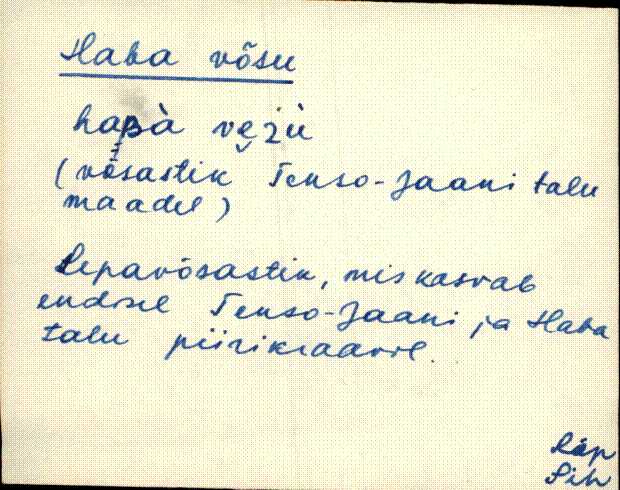 Haba võsu
hapà vezü
(võsastik Tenso-Jaani talu
maadel)
Lepavõsastik, mis kasvab
endisel Tenso-Jaani ja Haba
talu piirikraavil.
Räp
Sih